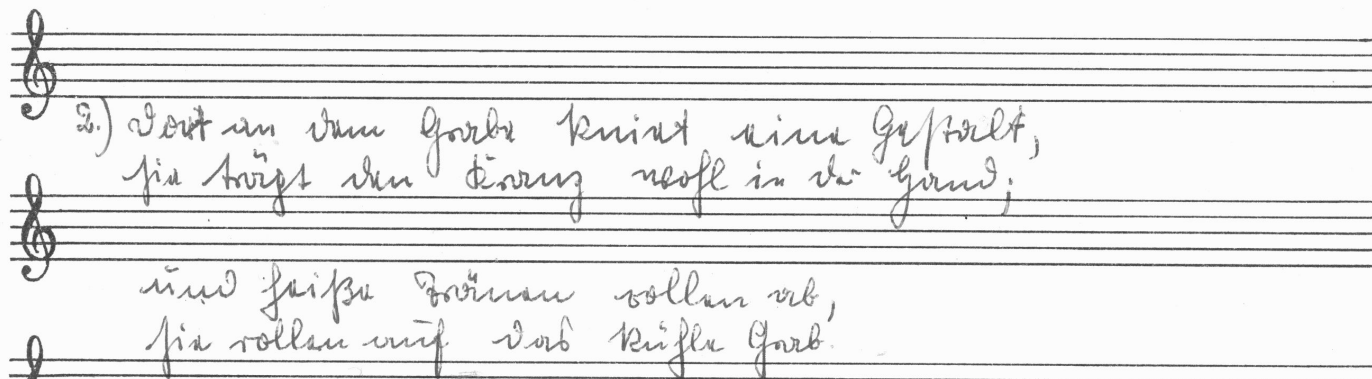 2.) Dort an dem Grabe kniet eine Gestalt,
sie trägt den Kranz wohl in der Hand;
und heiße Tränen rollen ab,
sie rollen auf das kühle Grab.